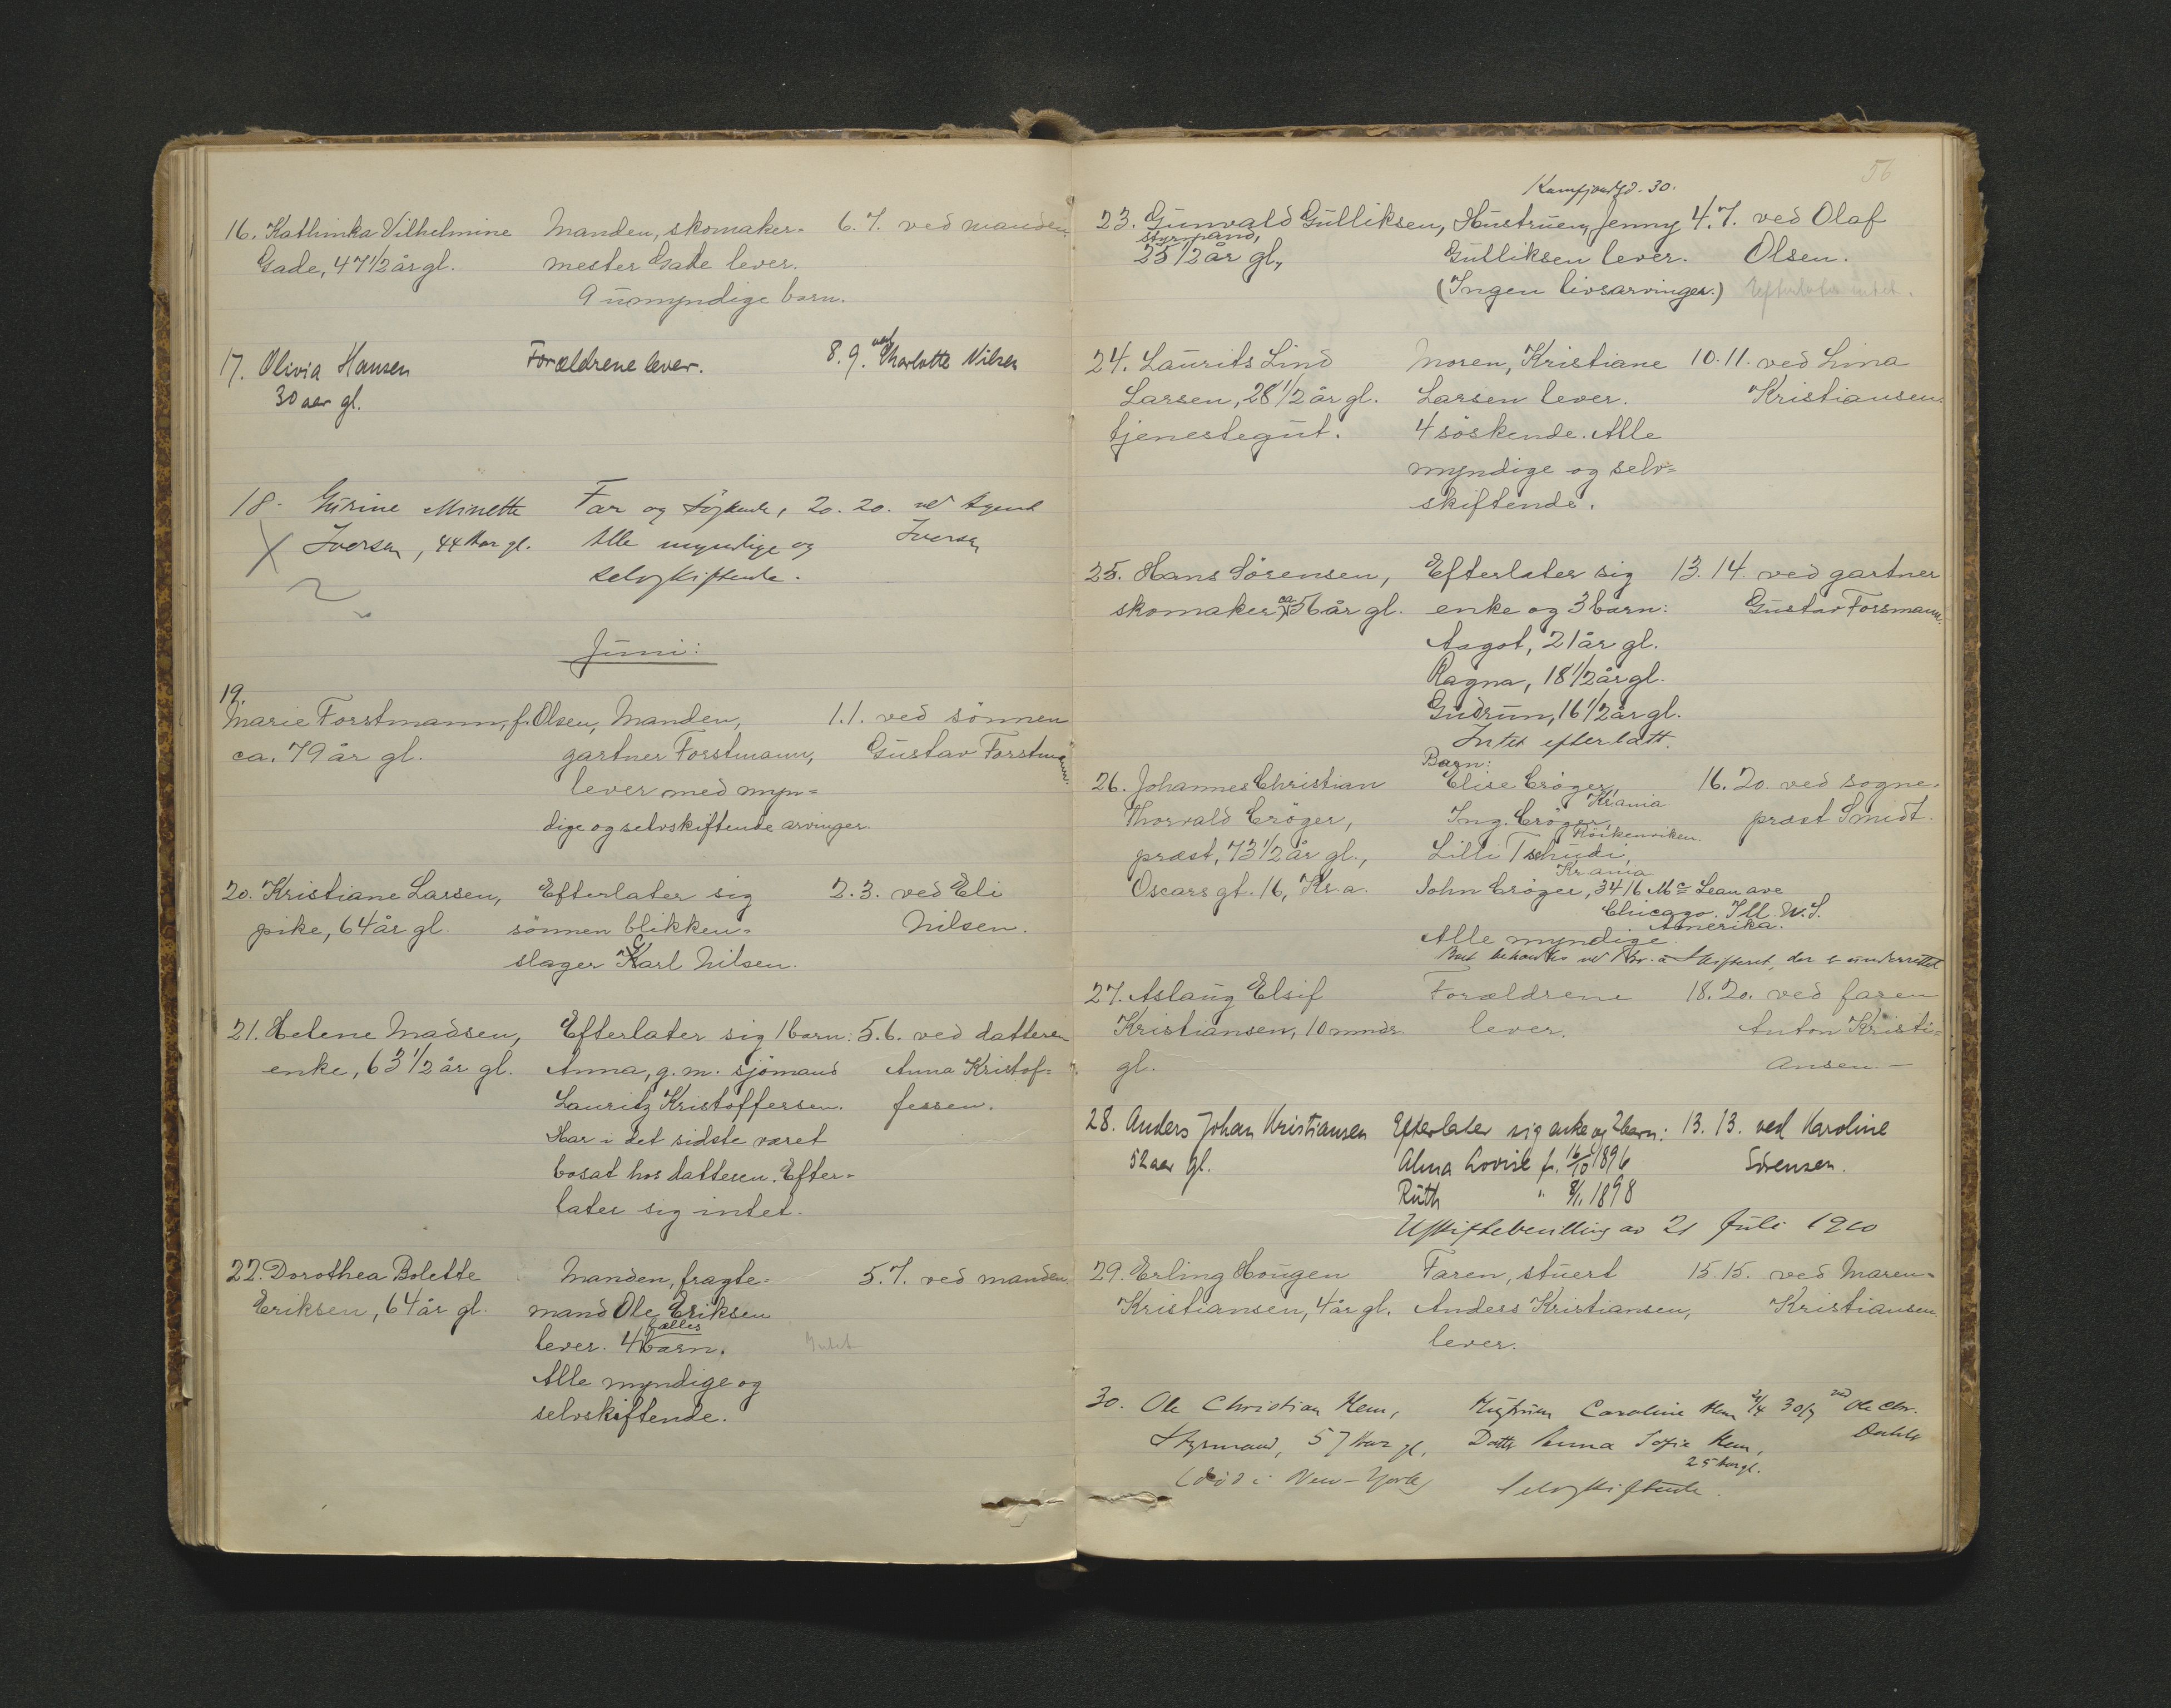 16. Kathinka Vilhelmine Manden, skomaker= 6.7. ved manden
Gade, 47 1/2 år gl. mester Gade lever.
9 umyndige barn.
17. Olivia Hansen Forældrene lever. 8.9. ved Charlotte Nilsen
30 aar gl.
18. Gurine Minette Far og Søskende, 20. 20. ved Agent
Iversen, 44 Aar gl. Alle myndige og Iversen
selvskiftende.
Juni:
19.
Marie Forstmann, f. Olsen, Manden, 1.1. ved sönnen
ca. 79 år gl. gartner Forstmann, Gustav Forstmann
lever med myn=
dige og selvskiftende arvinger.
20. Kristiane Larsen, Efterlater sig 2.3. ved Eli
pike, 64 år gl. sönnen blikken= Nilsen.
slager Karl Nilsen.
21. Helene Madsen, Efterlater sig 1 barn: 5.6. ved datteren
enke, 63 1/2 år gl. Anna, g. m. sjömand Anna Kristof=
Lauritz Kristoffersen. fersen.
Har i det sidste været
bosat hos datteren. Efter=
later sig intet.
22. Dorothea Bolette Manden, fragte= 5.7. ved manden.
Eriksen, 64 år gl. mand Ole Eriksen
fælles
lever. 4 barn. Intet
Alle myndige og
selvskiftende.
56
30.
23. Gunvald Gulliksen, Hustruen, Jenny 4.7. ved Olaf
styrmand,
25 1/2 år gl., Gulliksen lever. Olsen.
(Ingen livsarvinger.) Efterlater intet.
24. Laurits Lind Moren, Kristiane 10.11. ved Lina
Larsen, 28 1/2 år gl. Larsen lever. Kristiansen.
tjenestegut. 4 söskende. Alle
myndige og selv=
skiftende.
25. Hans Sörensen, Efterlater sig 13.14. ved gartner
skomaker, ca 56 år gl. enke og 3 barn: Gustav Forsmann.
Aagot, 21 år gl.
Ragna, 18 1/2 år gl.
Gudrun, 16 1/2 år gl.
Intet efterlatt.
Barn:
26. Johannes Christian Elise Cröger, 16.20. ved sogne=
Kr.ania
Thorvald Cröger, Ing. Cröger, præst Smidt.
Röikenviken.
præst, 73 1/2 år gl., Lilli Tschudi,
Kr.ania
Oscarsgt. 16, Kr.a. John Cröger, 3416 Mc Lean ave
Chicago. Ill. U.S.
Amerika.
Alle myndige.
Boet behandles ved Kr.a Skifteret, der er underrettet
27. Aslaug Elsif Forældrene 18.20. ved faren
Kristiansen, 10 mndr. lever. Anton Kristi=
gl. ansen.—
28. Anders Johan Kristiansen Efterlater sig enke og 2 barn: 13.13. ved Karoline
52 aar gl. Alma Lovise f. 16/10 1896 Sörensen.
Ruth " 8/1 1898
Uskiftebevilling av 21 Juli 1910
29. Erling Hougen Faren, stuert 15.15. ved Maren
Kristiansen, 4 år gl. Anders Kristiansen, Kristiansen.
lever.
30. Ole Christian Hem, Hustruen Caroline Hem 21/4 30/7 ved Ole Chr.
Styrmand, 57 Aar gl. Datter Anna Sofie Hem, Dahle
25 Aar gl.
(död i New-York) Selvskiftende.